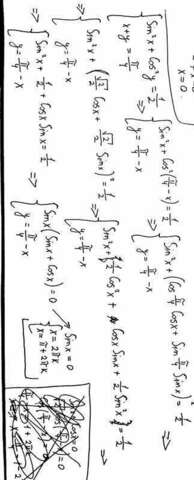 { Sin²x + Cos²y = 1/2
x + y = π/4 =>
{ Sin²x + Cos²(π/4 - x) = 1/2
y = π/4 - x =>
{ Sin²x + (Cos π/4 Cosx + Sin π/4 Sinx)² = 1/2
y = π/4 - x
=> { Sin²x + (√2/2 Cosx + √2/2 Sinx)² = 1/2
y = π/4 - x =>
{ Sin²x + 1/2 Cos²x + Cosx Sinx + 1/2 Sin²x = 1/2
y = π/4 - x =>
=> { Sin²x + 1/2 + Cosx Sinx = 1/2
y = π/4 - x =>
{ Sinx (Sinx + Cosx) = 0
y = π/4 - x
Sinx = 0
x = 2πk
x = π + 2πk